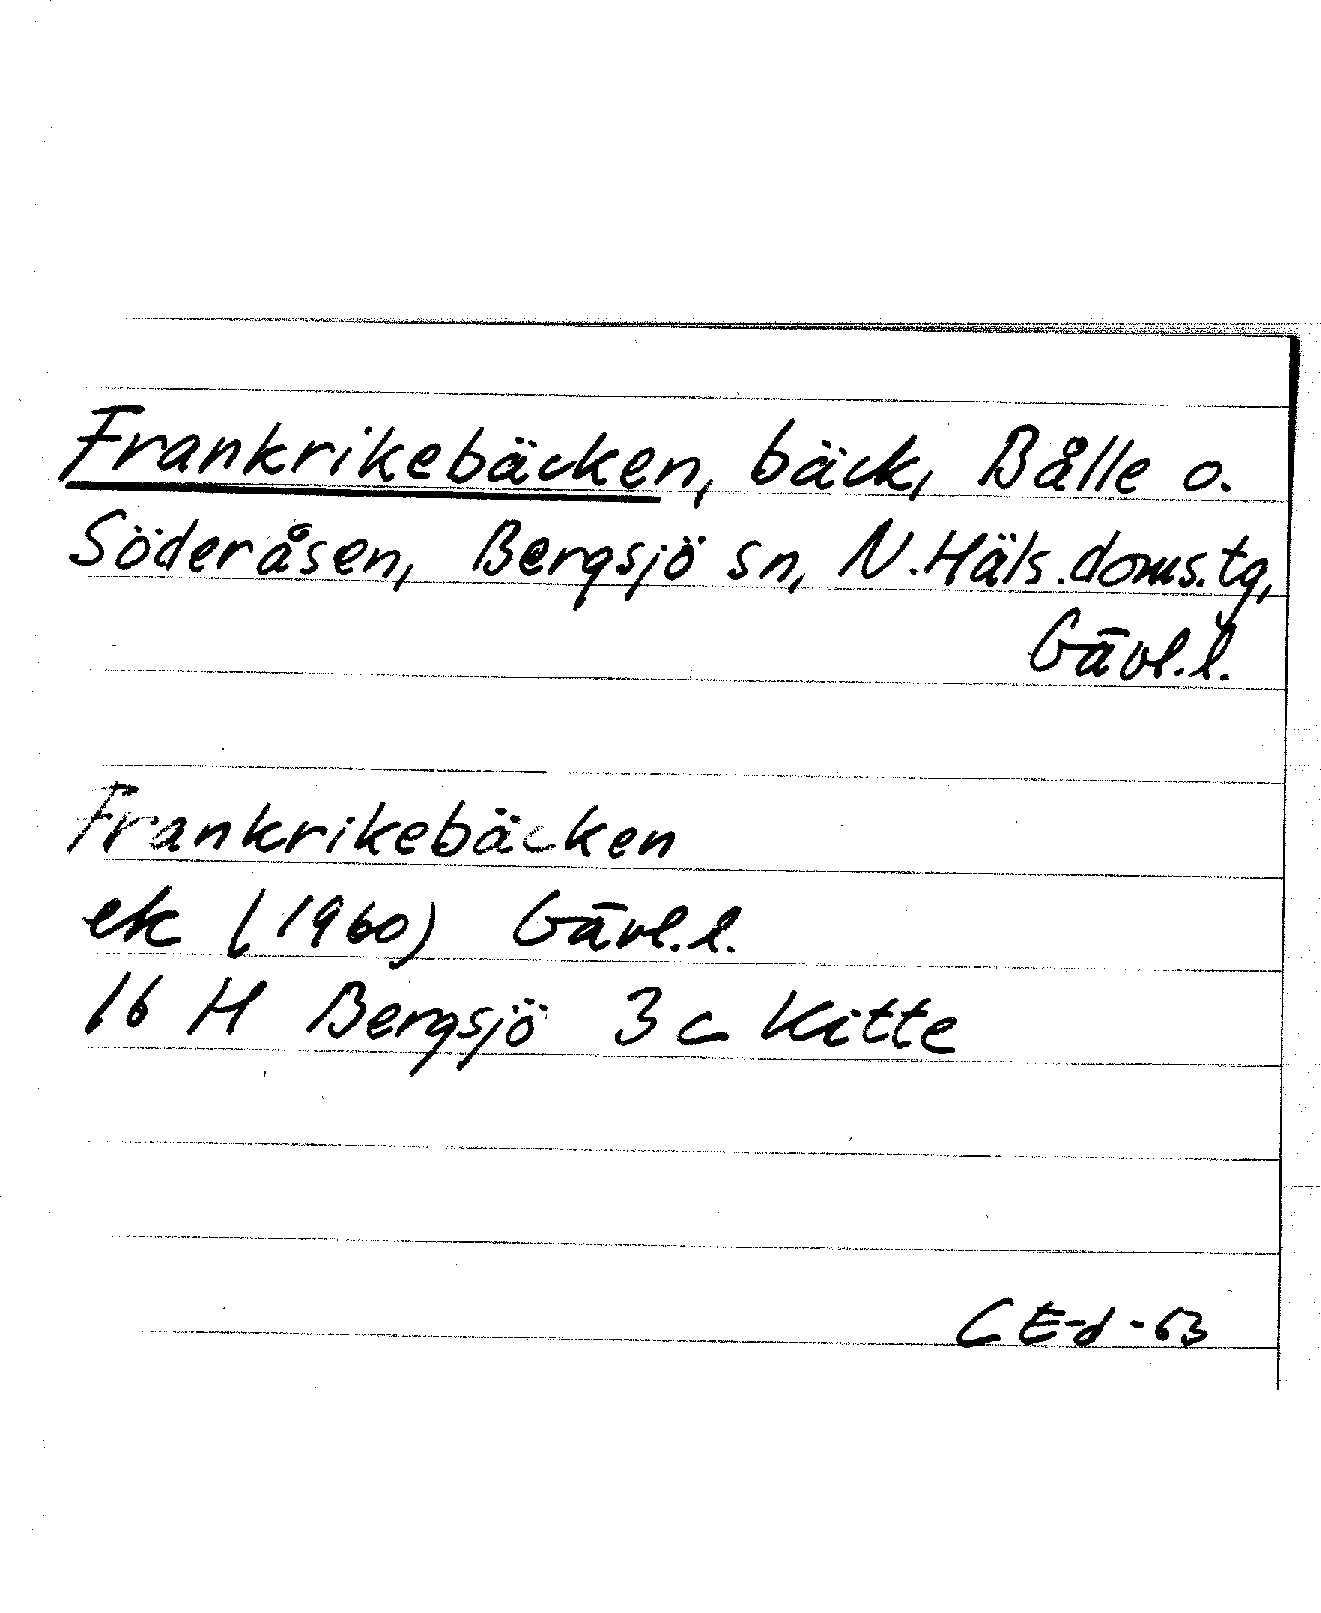 Frankrikebäcken, bäck, Bålle o.
Söderåsen, Bergsjö sn, N.Häls.doms.tg,
Gävl.l.
Frankrikebäcken
ek (1960) Gävl.l.
16 H Bergsjö 3c Kitte
CE-d-63